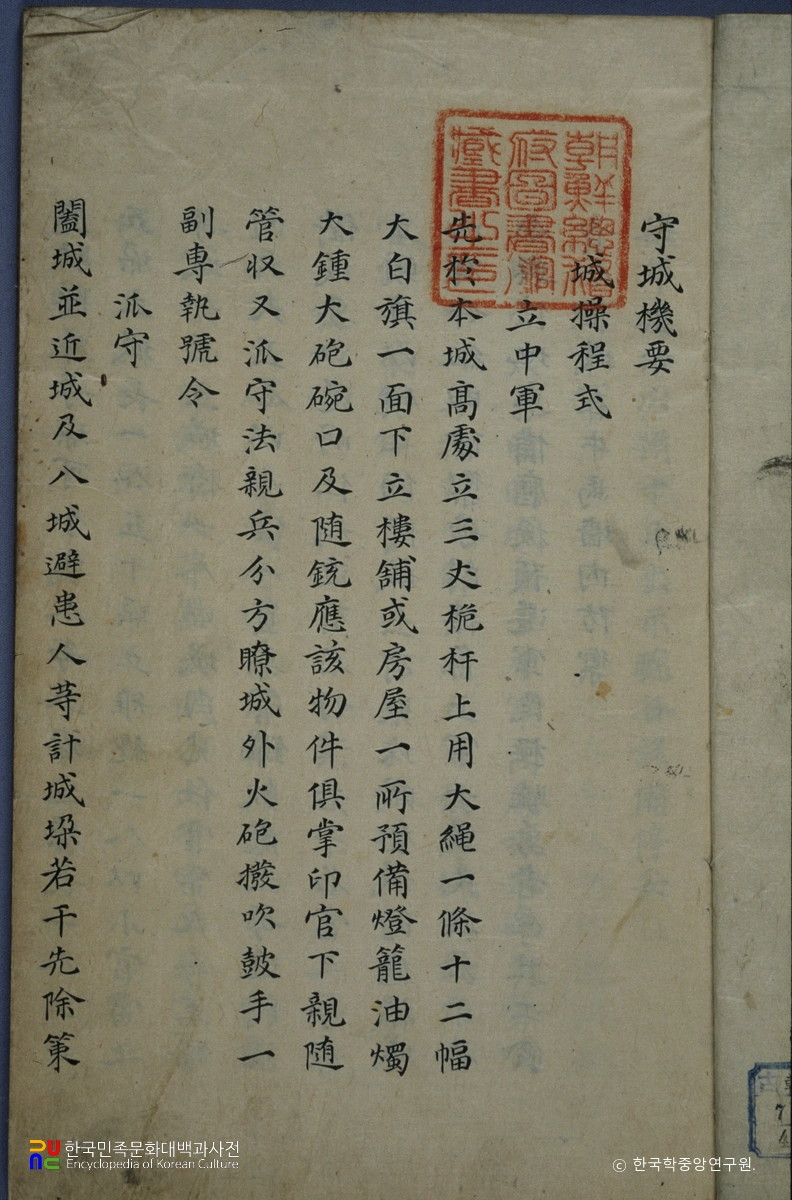 守城機要
城操程式
立中軍
先於本城高處立三丈桅杆上用大繩一條十二幅
大白旗一面下立樓舖或房屋一所預備燈籠油燭
大鍾大砲碗口及随銃應該物件俱掌印官下親随
管収又派守法親兵分方瞭城外火砲撥吹鼓手一
副專執號令
派守
闔城並近城及入城避患人等計城垜若干先除策
朝鮮總督
府圖書館
藏書之印
한국민족문화대백과사전
Encyclopedia of Korean Culture
© 한국학중앙연구원.